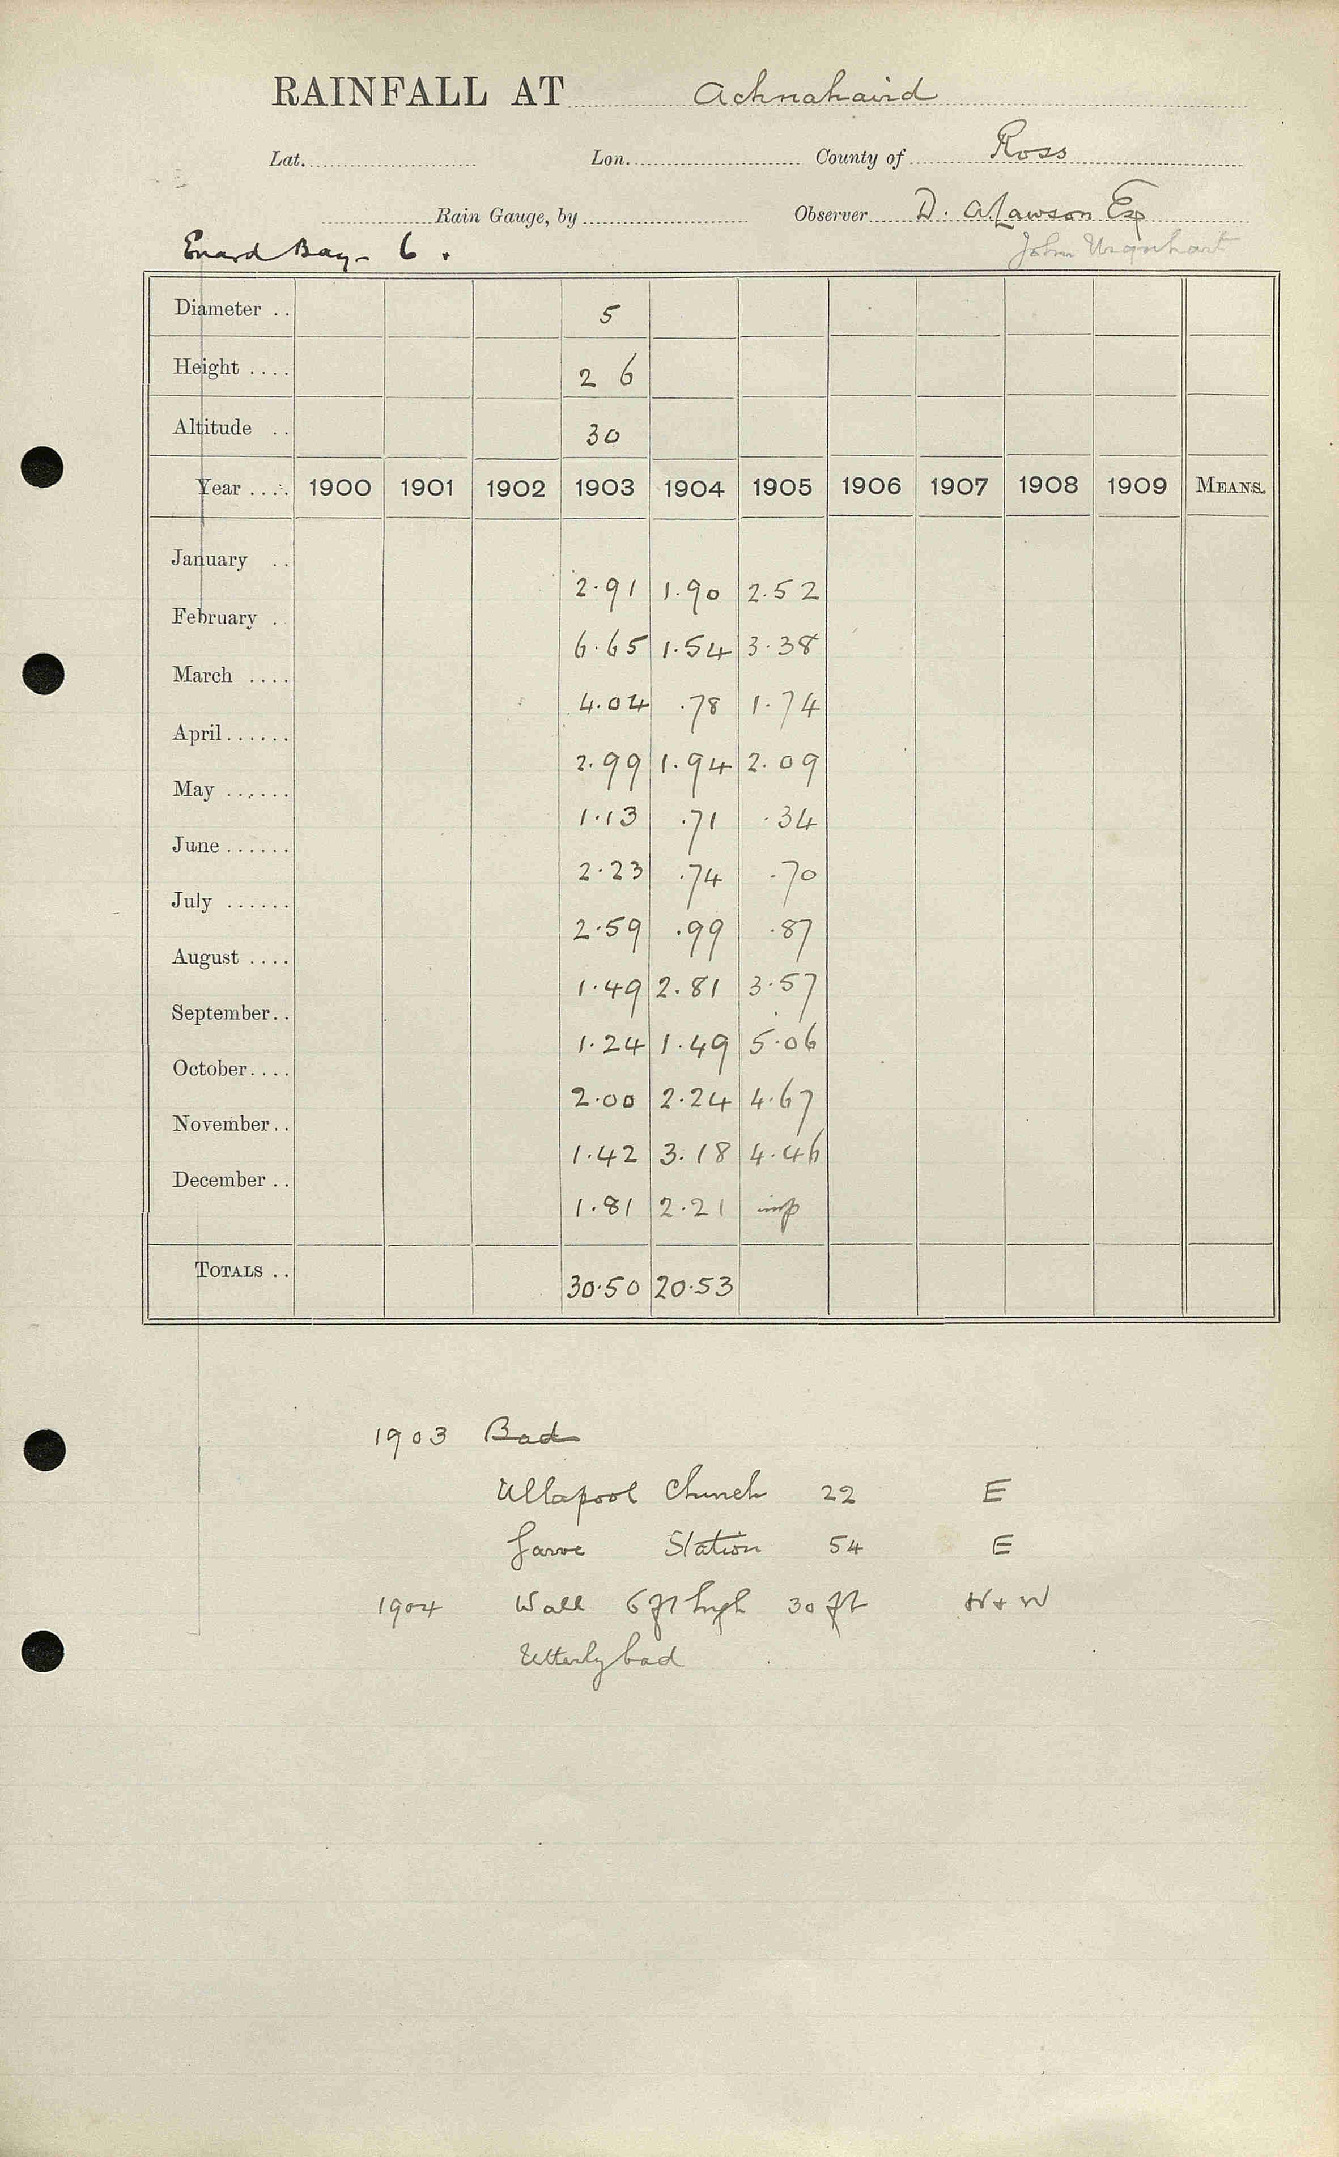 RAINFALL AT Achnahaird
Lat. Lon. County of Ross
Rain Gauge, by Observer D. A Lawson Esq
Enard Bay - 6 . John Urquhart
Diameter .. 5
Height .... 2 6
Altitude .. 30
Year .... 1900 1901 1902 1903 1904 1905 1906 1907 1908 1909 MEANS.
January ..
2.91 1.90 2.52
February .
6.65 1.54 3.38
March ....
4.04 .78 1.74
April......
2.99 1.94 2.09
May ......
1.13 .71 .34
June ......
2.23 .74 .70
July ......
2.59 .99 .87
August ....
1.49 2.81 3.57
September..
1.24 1.49 5.06
October....
2.00 2.24 4.67
November..
1.42 3.18 4.46
December ..
1.81 2.21 imp
TOTALS .. 30.50 20.53
1903 Bad
Ullapool Church 22 E
Garve Station 54 E
1904 Wall 6 ft high 30 ft N + W
Utterly bad